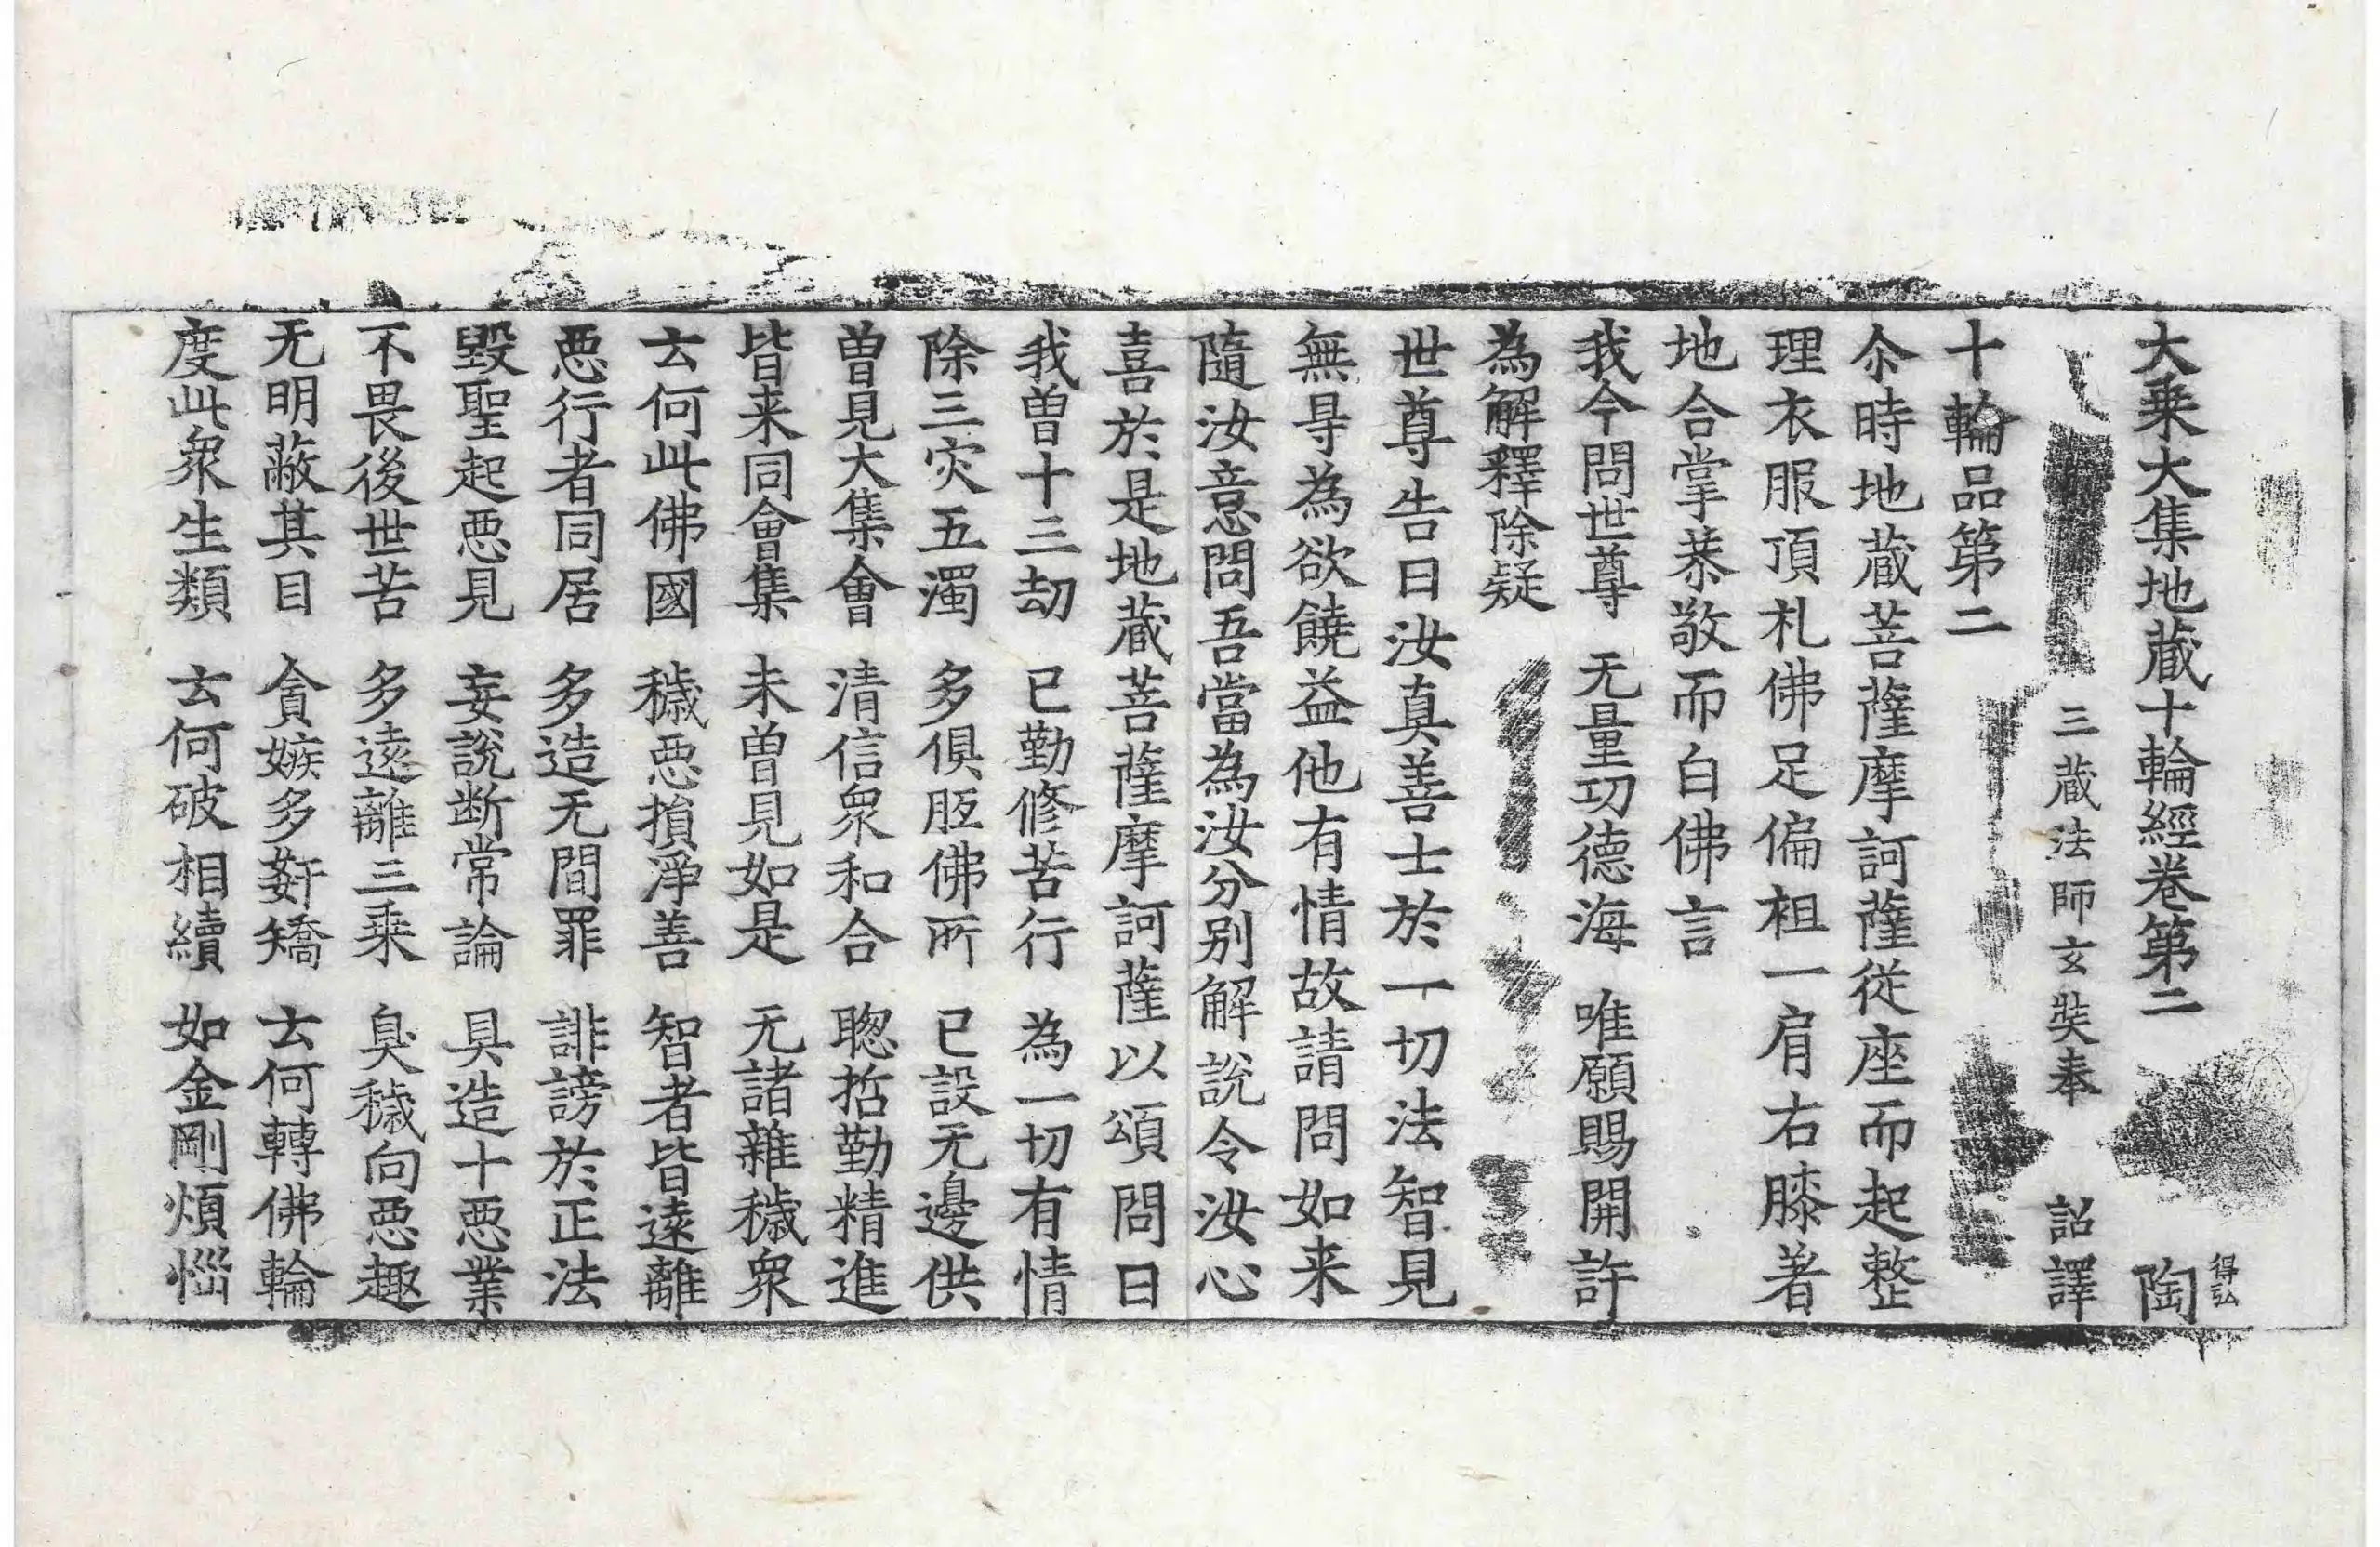 大乗大集地蔵十輪經卷第二　陶
得弘
三蔵法師玄奘奉　詔譯
十輪品第二
尒時地蔵菩薩摩訶薩従座而起整
理衣服頂礼佛足偏袒一肩右膝著
地合掌恭敬而白佛言
我今問世尊　无量功德海　唯願賜開許
為解釋除疑
世尊告曰汝真善士於一切法智見
無㝵為欲饒益他有情故請問如来
隨汝意問吾當為汝分別解說令汝心
喜於是地蔵菩薩摩訶薩以頌問曰
我曽十三劫　已勤修苦行　為一切有情
除三灾五濁　多俱胝佛所　已設无邊供
曽見大集會　清信衆和合　聦哲勤精進
皆来同會集　未曽見如是　无諸雜穢衆
云何此佛國　穢惡損淨善　智者皆遠離
惡行者同居　多造无間罪　誹謗於正法
毀聖起惡見　妄說断常論　具造十惡業
不畏後世苦　多遠離三乗　臭穢向惡趣
无明蔽其目　貪嫉多姧矯　云何轉佛輪
度此衆生類　云何破相續　如金剛煩惱